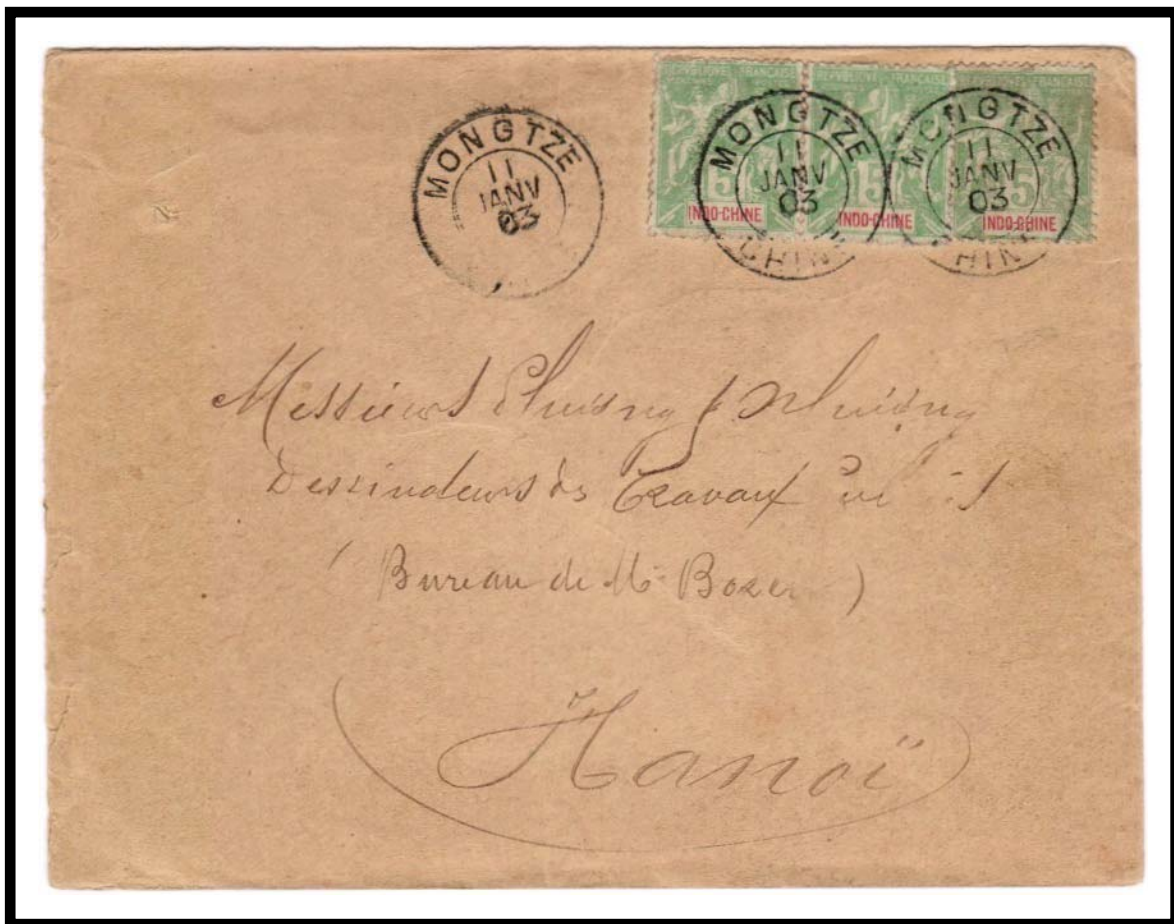 MONGTZE
11
JANV
03
REPUBLIQUE FRANCAISE
5
INDO-CHINE
MONGTZE
11
JANV
03
CHINE
REPUBLIQUE FRANCAISE
5
INDO-CHINE
MONGTZE
11
JANV
03
5
INDO-CHINE
Messieurs
Dessinateurs des Travaux
(Bureau de Mr Bozer)
Hanoï